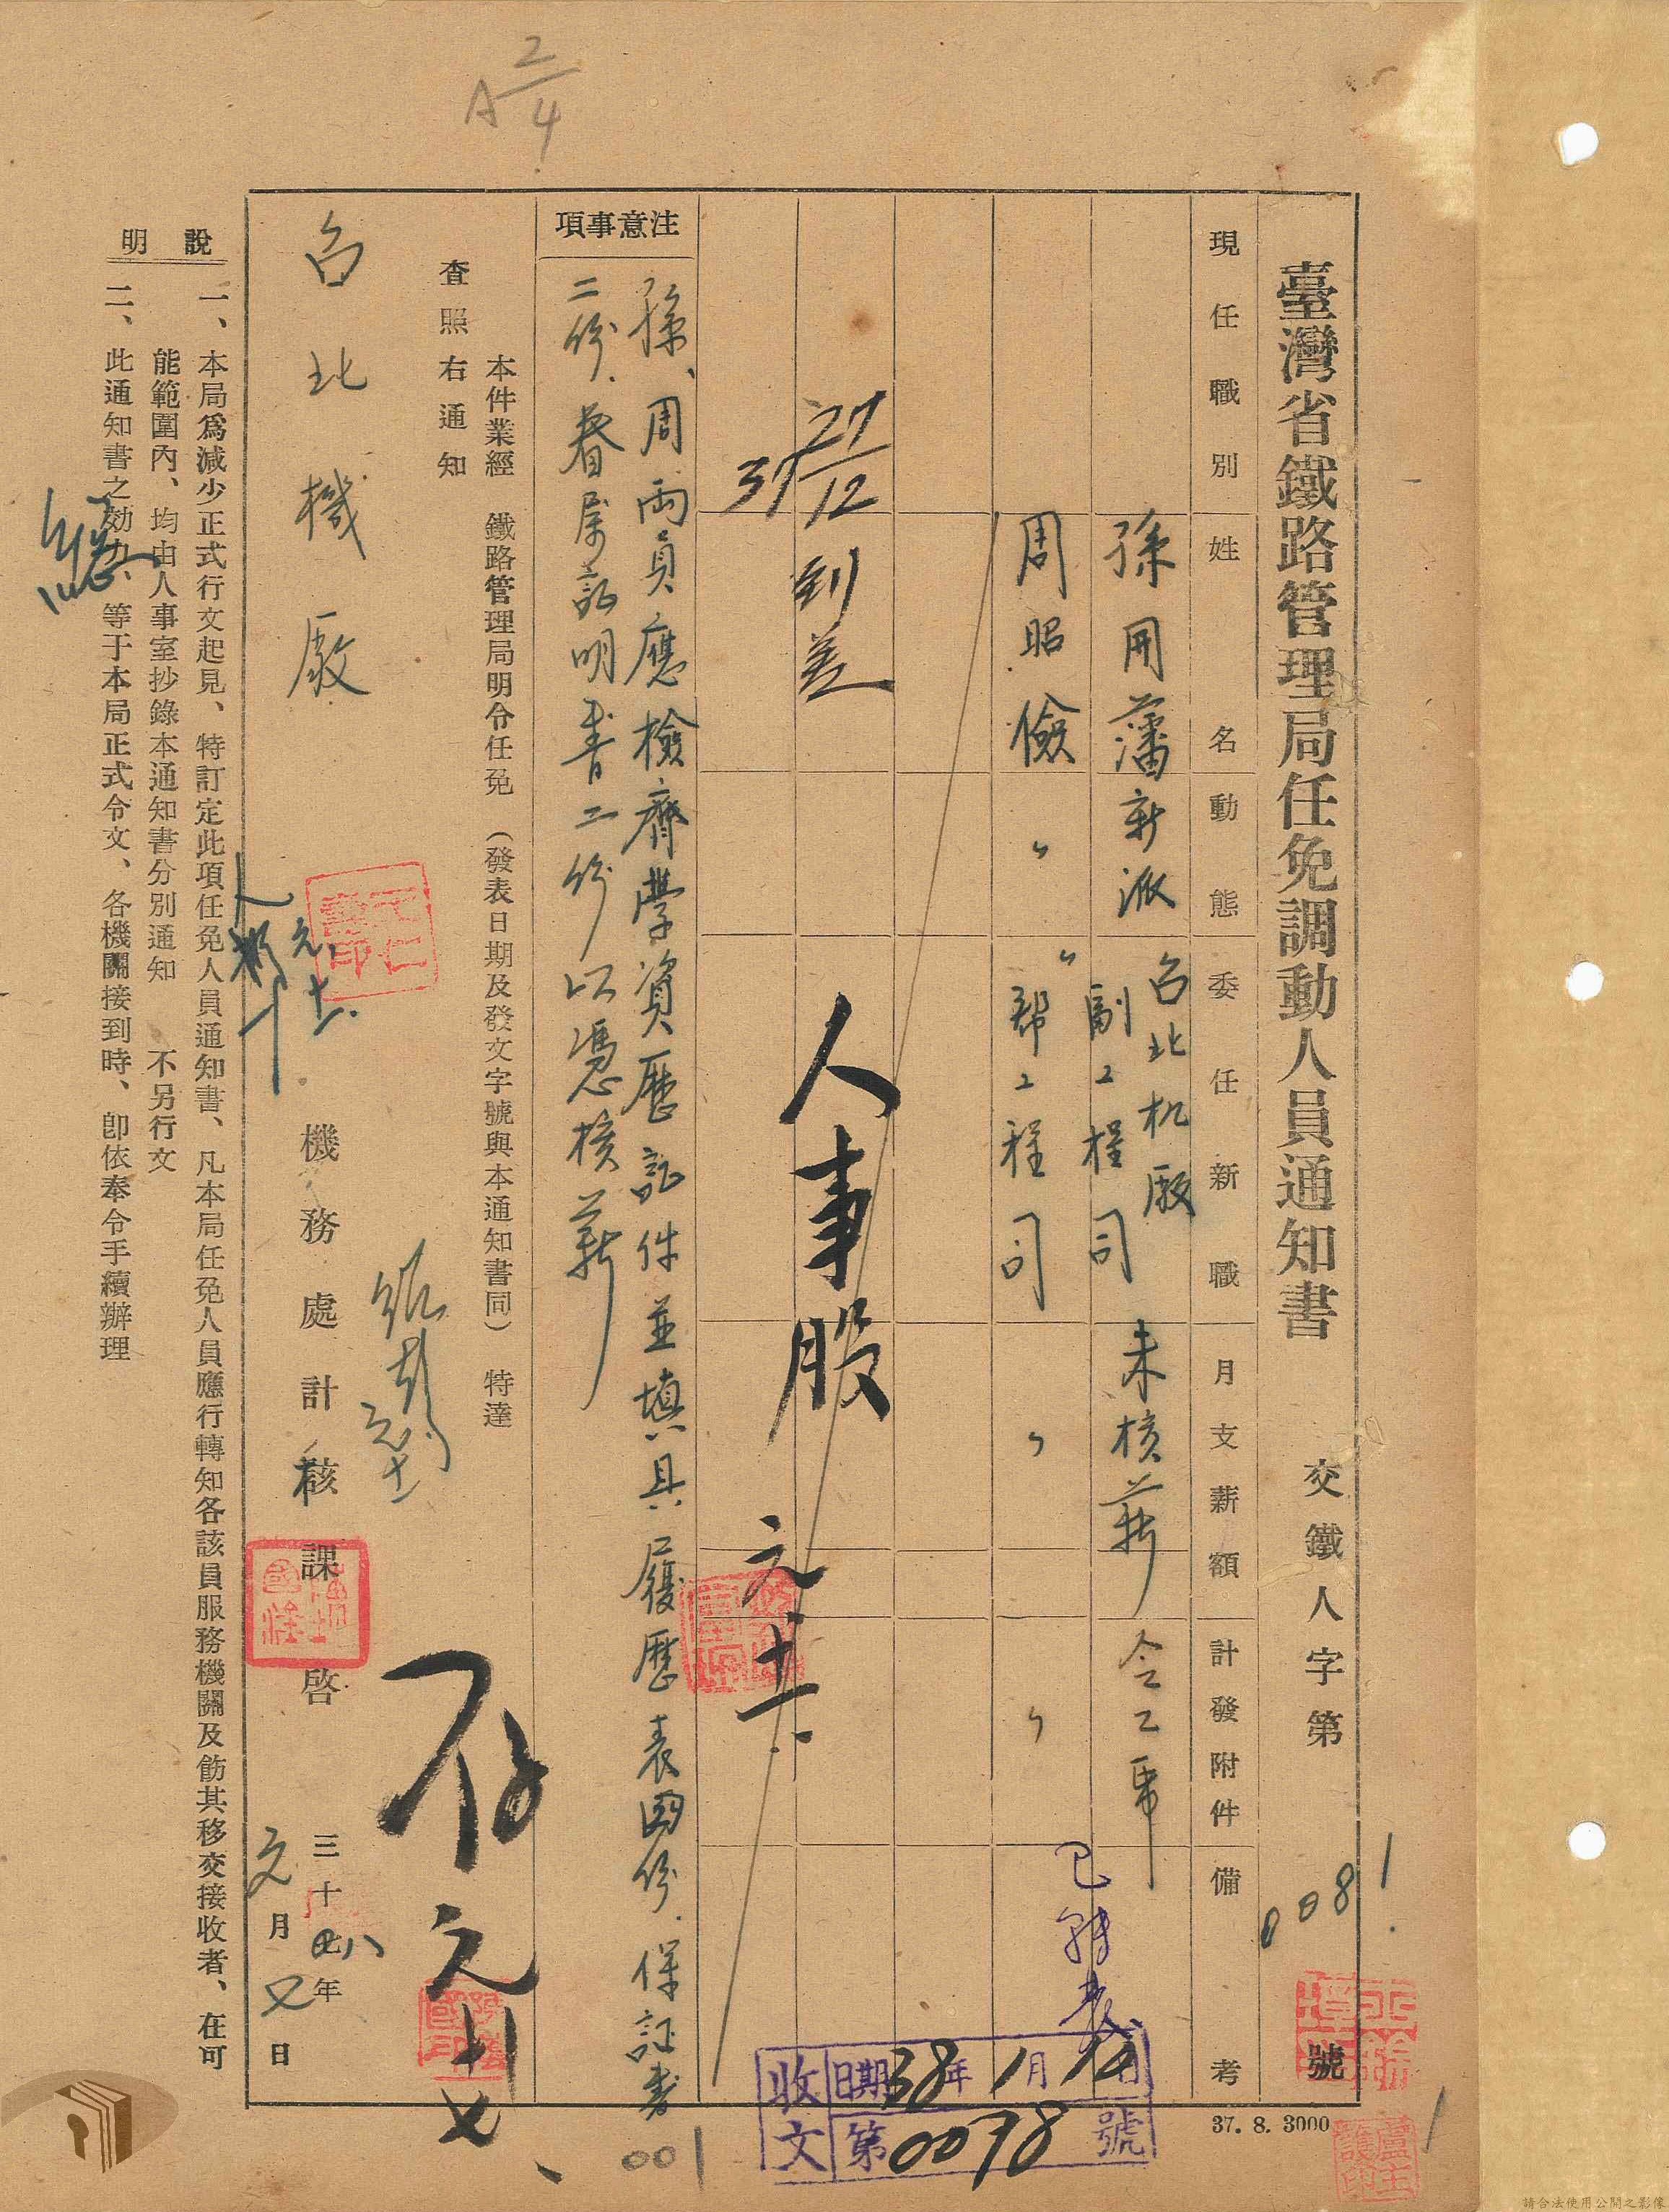 臺灣省鐵路管理局任免調動人員通知書 交鐵人字第0081號
現任職別 姓名 動態 委任新職 月支薪額 計發附件 備考
孫用藩 新派 台北机廠 副工程司 未核薪 令乙帋
周昭儉 〃 〃 幫工程司 〃 〃
已轉表
37 27/12 到差
人事股 元 十一
注意事項
孫、周兩員應檢齊學資歷証件並填具履歷表四份.保証書
二份.眷屬証明書二份以憑核薪
本件業經 鐵路管理局明令任免 (發表日期及發文字號與本通知書同) 特達
查照右通知
台北機廠
機務處計核課啓
三十八年
元月 日
存 元 廿七
說明
一、本局爲減少正式行文起見、特訂定此項任免人員通知書、凡本局任免人員應行轉知各該員服務機關及飭其移交接收者、在可
能範圍內、均由人事室抄錄本通知書分別通知 不另行文
二、此通知書之効力、等于本局正式令文、各機關接到時、卽依奉令手續辦理
A 2/4
收文 日期38年1月 日
第0078號
37. 8. 3000
001
請合法使用公開之影像